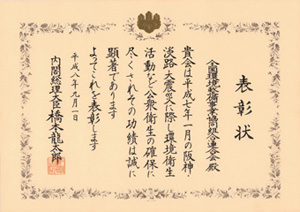 表彰状
全国環境整備事業協同組合連合会 殿
貴会は平成七年一月の阪神・
淡路大震災に際し環境衛生
活動など公衆衛生の確保に
尽くされその功績は誠に
顕著であります
よってこれを表彰します
平成八年九月一日
内閣総理大臣 橋本龍太郎